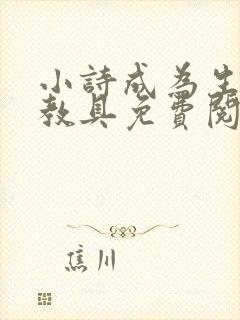 小詩成為生
教具免費閱
焦川